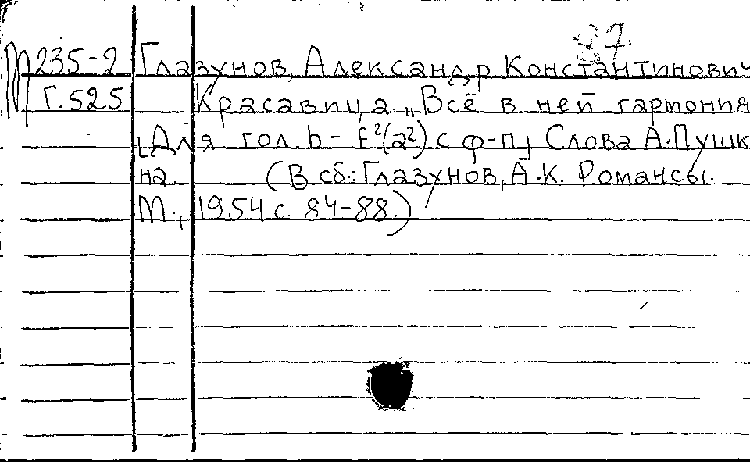 27
М 235-2 Глазунов, Александр Константинович
Г.525 Красавица „Всё в ней гармония
[Для гол. h - f²(a²) с ф-п] Слова А.Пушки
на. (В сб.: Глазунов, А.К. Романсы.
М., 1954 с. 84-88.)